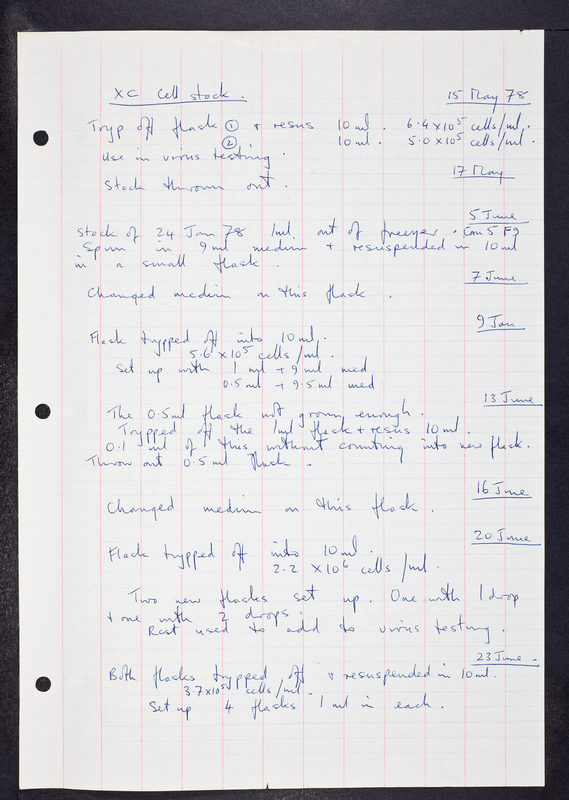 XC Cell stock. 15 May 78
Tryp off flask ① + resus 10 ml. 6.4 x 10⁵ cells/ml.
② 10 ml. 5.0 x 10⁵ cells/ml.
Use in virus testing.
17 May
Stock thrown out.
5 June
Stock of 24 Jan 78 1ml out of freezer. (Can 5 F9)
Spun in 9 ml medium + resuspended in 10 ml
in a small flask.
7 June
Changed medium on this flask.
9 Jan
Flask trypped off into 10 ml.
5.6 x 10⁵ cells/ml.
Set up with 1 ml + 9 ml med
0.5 ml + 9.5 ml med
13 June
The 0.5 ml flask not grown enough.
Trypped off the 1ml flask + resus 10 ml.
0.1 ml of this without counting into new flask.
Throw out 0.5 ml flask.
16 June
Changed medium on this flask.
20 June
Flask trypped off into 10 ml.
2.2 x 10⁶ cells/ml.
Two new flasks set up. One with 1 drop
+ one with 2 drops.
Rest used to add to virus testing.
23 June.
Both flasks trypped off + resuspended in 10 ml.
3.7 x 10⁵ cells/ml.
Set up 4 flasks 1 ml in each.